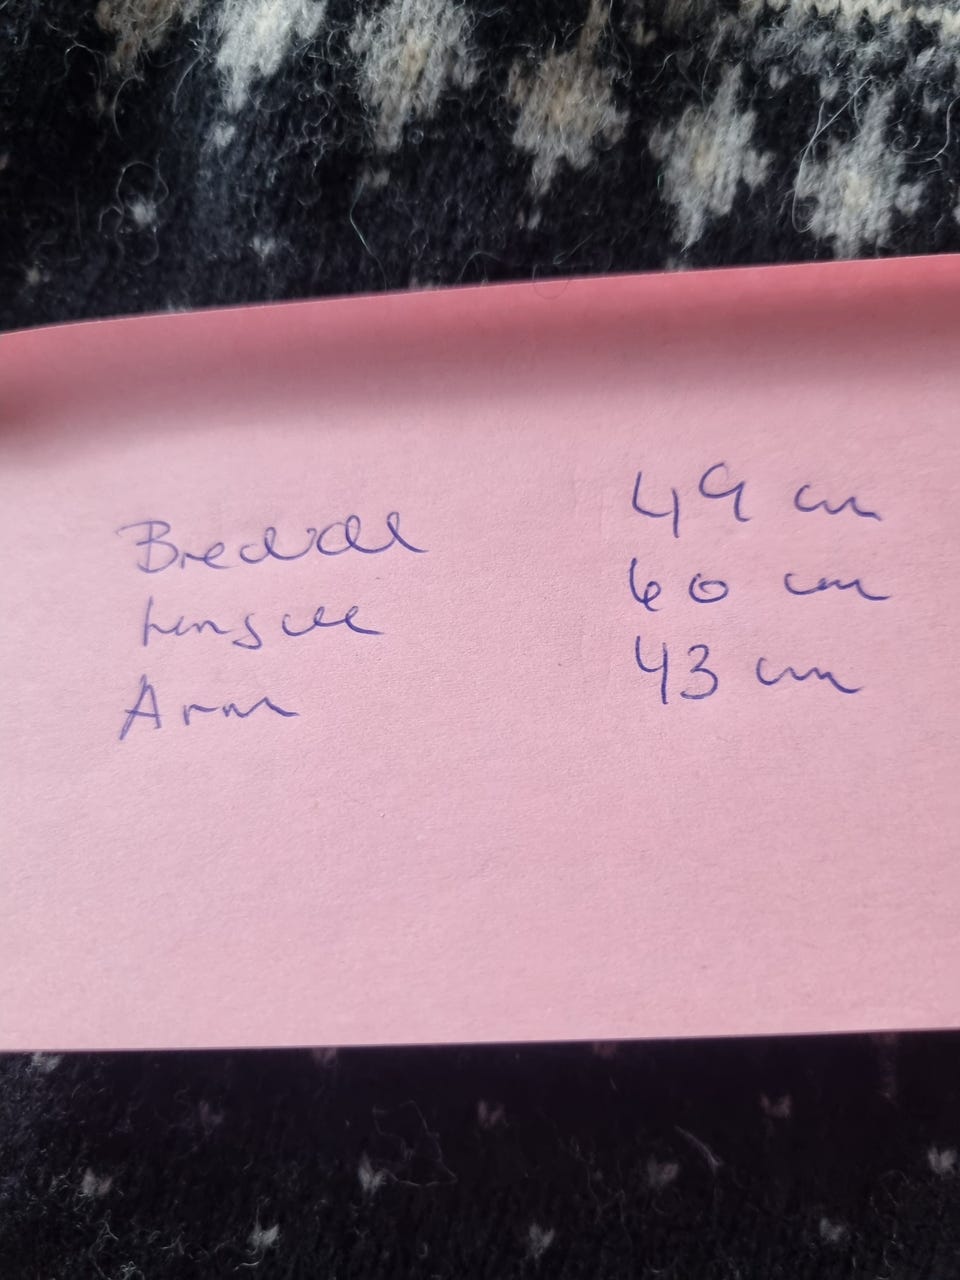 Bredde 49 cm
Lengde 60 cm
Arm 43 cm